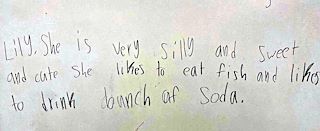 Lily. She is very silly and sweet
and cute she likes to eat fish and likes
to drink a bunch of Soda.